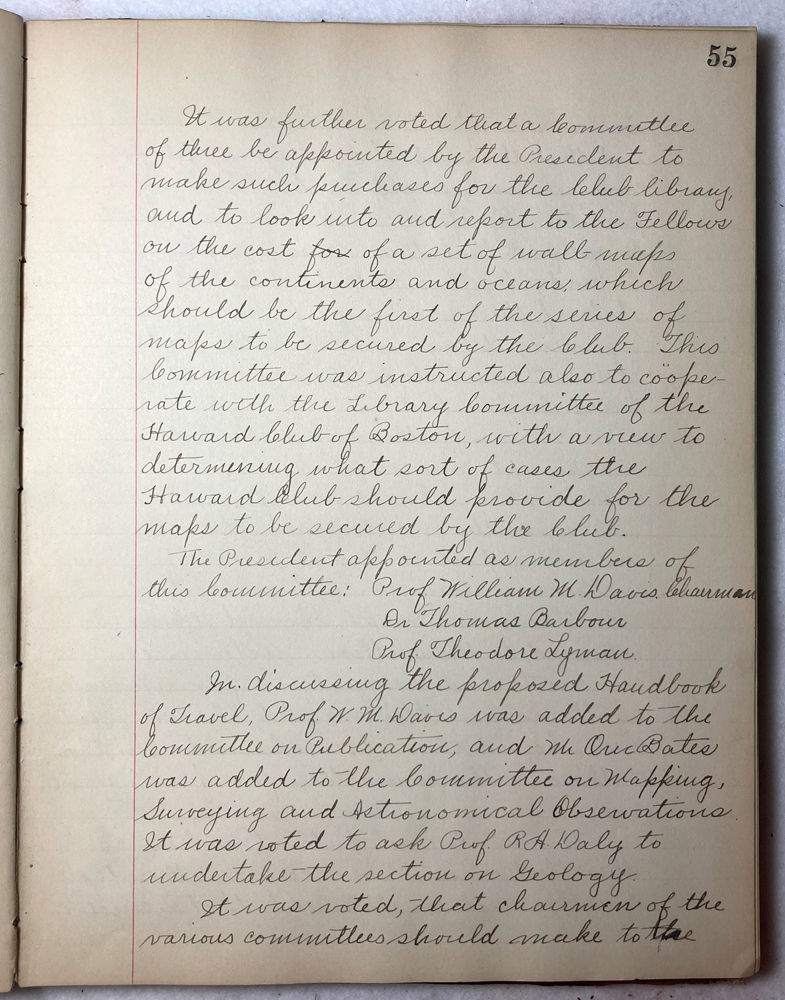 55
It was further voted that a Committee
of three be appointed by the President to
make such purchases for the Club library,
and to look into and report to the Fellows
on the cost for of a set of wall maps
of the continents and oceans, which
should be the first of the series of
maps to be secured by the Club. This
Committee was instructed also to coöpe-
rate with the Library Committee of the
Harvard Club of Boston, with a view to
determining what sort of cases the
Harvard Club should provide for the
maps to be secured by the Club.
The President appointed as members of
this Committee: Prof. William M. Davis, Chairman
Dr Thomas Barbour
Prof. Theodore Lyman.
In discussing the proposed Handbook
of Travel, Prof. W. M. Davis was added to the
Committee on Publication, and Mr Oric Bates
was added to the Committee on Mapping,
Surveying and Astronomical Observations.
It was voted to ask Prof. R. A. Daly to
undertake the section on Geology.
It was voted, that chairmen of the
various committees should make to the